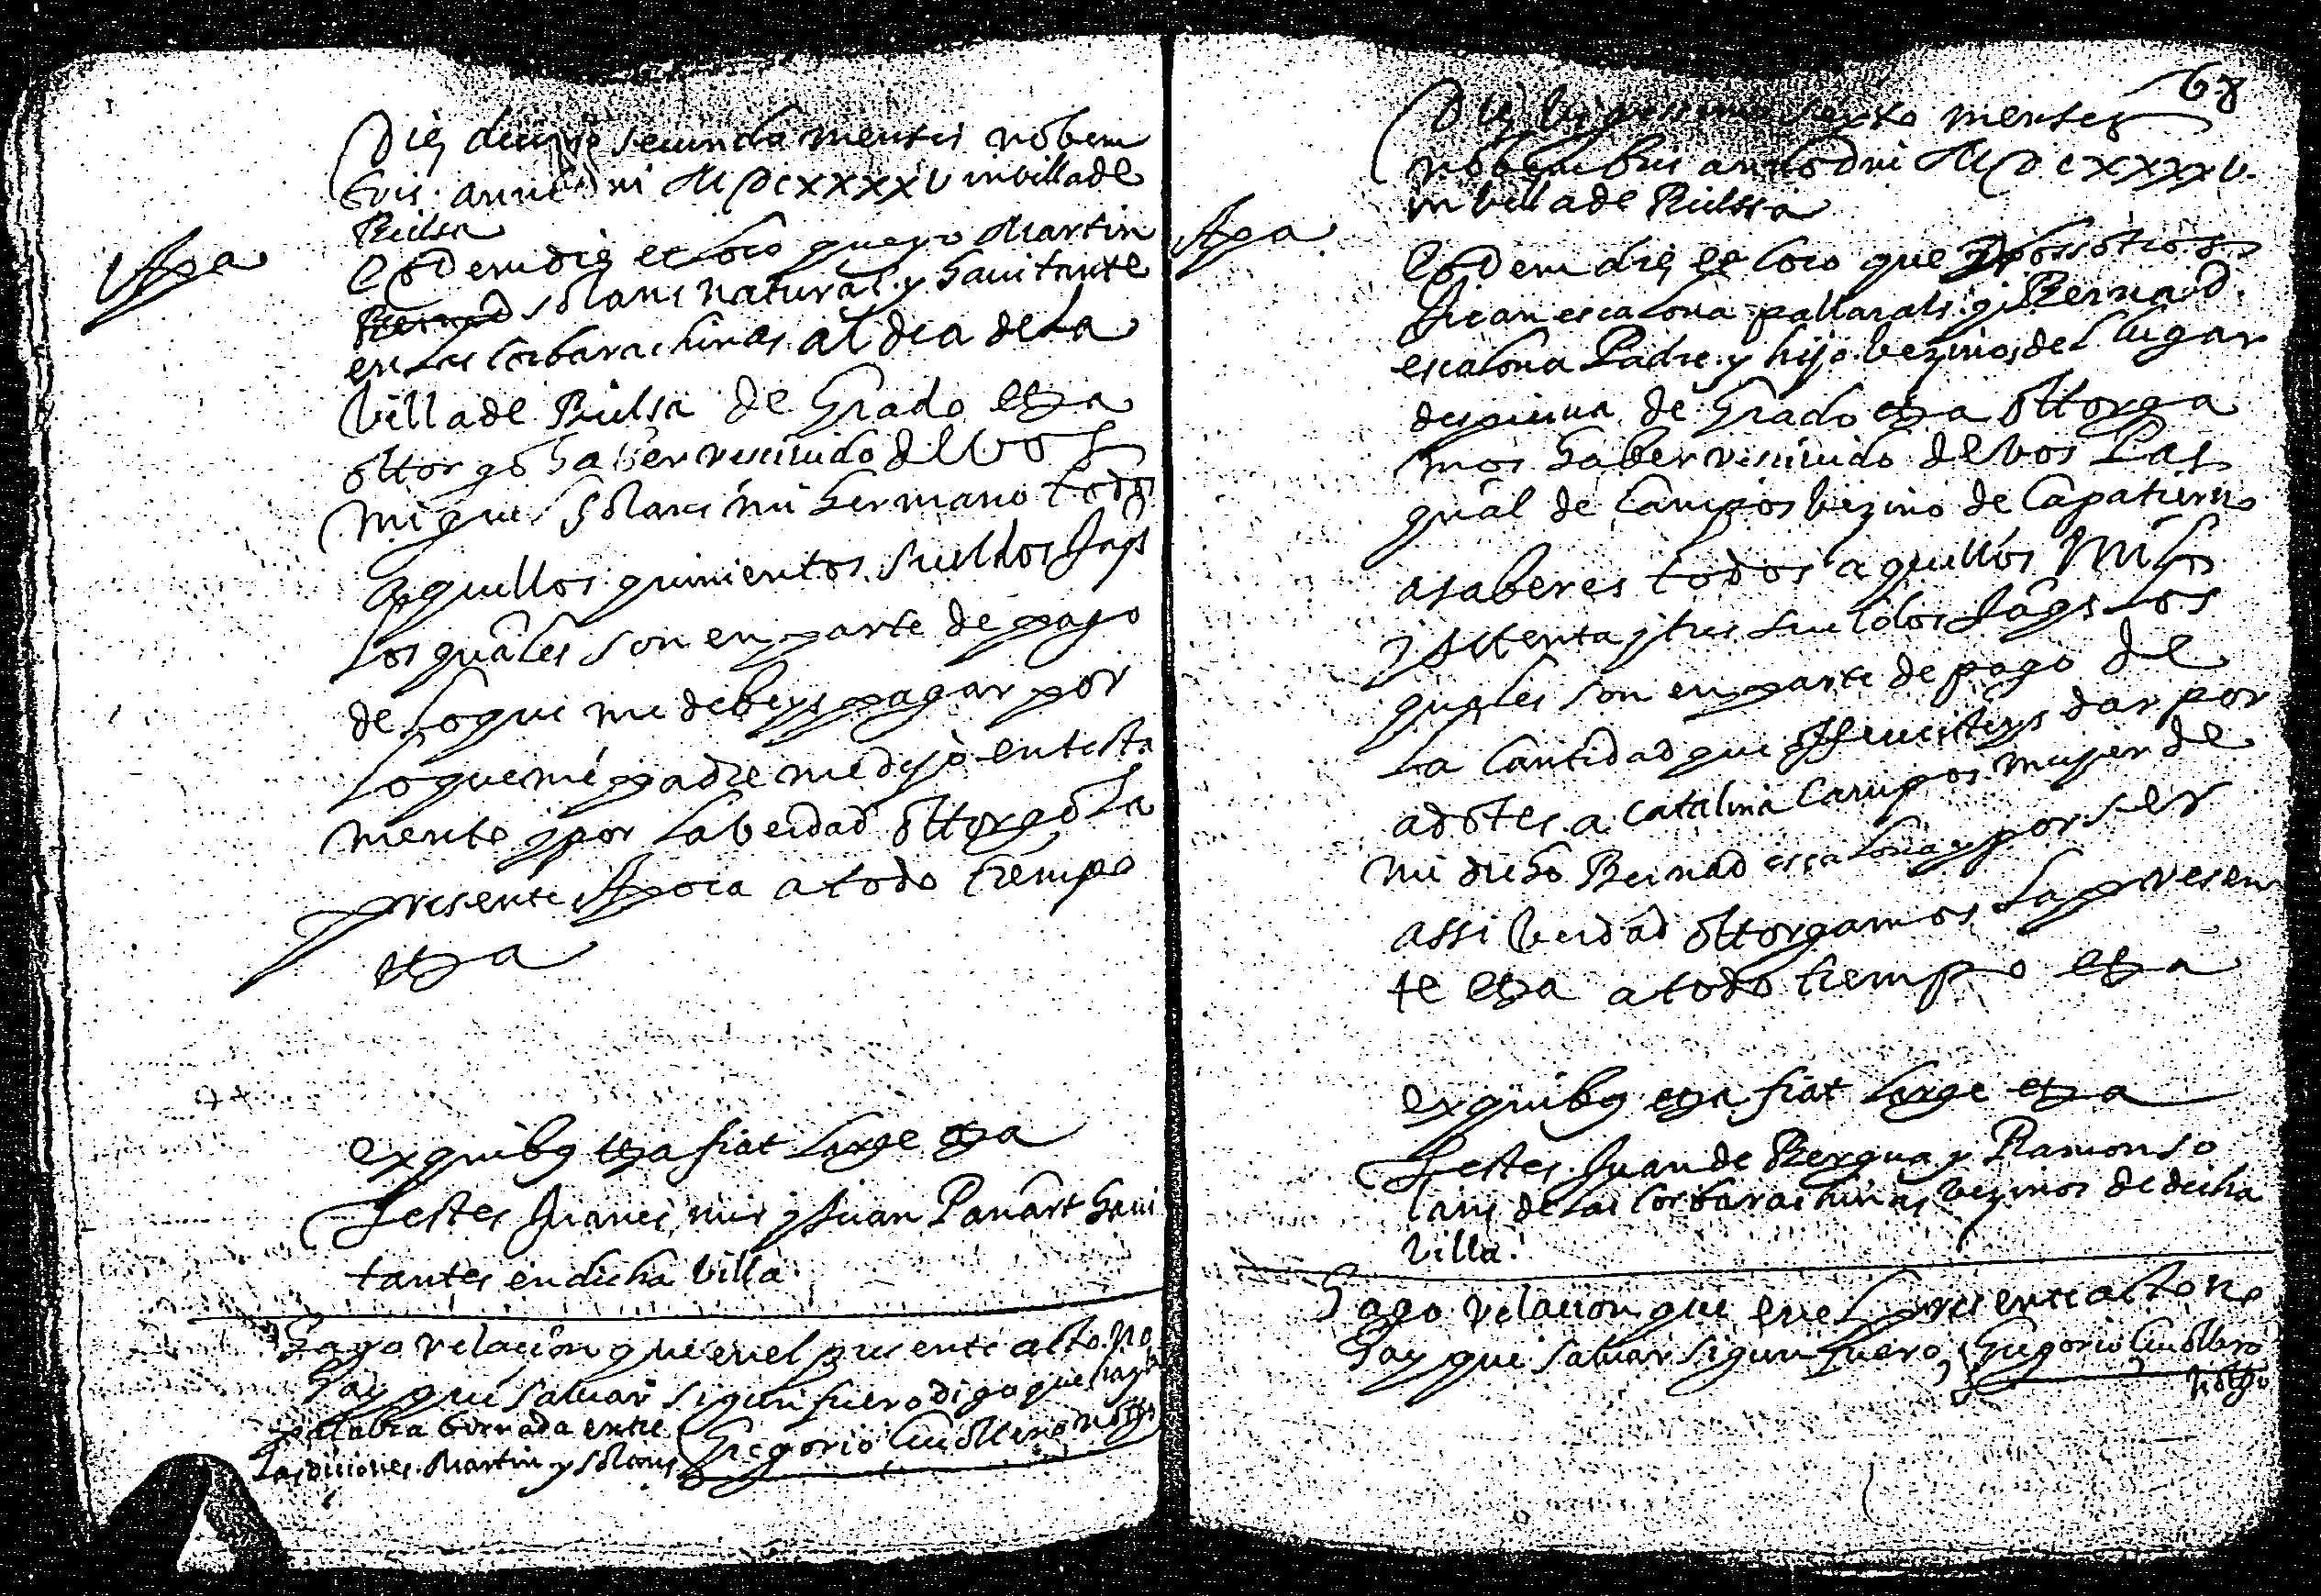 Die decimo secunda mensis nobem
bris anni dni MDCXXXXV in villa de
Bielsa
Apa
Eodem die et loco que yo Martin
Bernad solans natural y hauitante
en las Corbarachinas aldea de la
billa de Bielsa de Grado etza
ottorgo haber reciuido de vos
Miguel Solans mi hermano todos
aquellos quinientos sueldos Jaqs
los quales son en parte de pago
de lo que me debeys pagar por
lo que mi padre me dejo en testa
mento y por la berdad ottorgo la
presente Apoca a todo tiempo
etza
ex quibus etza fiat large etza
Testes Juanes mir y Juan Panart haui
tantes en dicha billa
Hago relacion que en el presente acto no
hay que saluar sigun fuero digo que hay
palabra borrada entre
las diciones Martin y solans Gregorio notto
68
Die bigesimo sexto mensis
nobembris anno dni MDCXXXXV
in billa de Bielssa
Apa
Eodem die et loco que nossotros
Juan escalona pallaruls y Bernad
escalona Padre y hijo bezinos del lugar
despierua de Grado etza ottorga
mos haber reciuido de vos Pas
qual de Campos bezino de Lapatierno
asaberes todos aquellos Mil
y settenta y tres sueldos Jaqs los
quales son en parte de pago de
la cantidad que offrecisteys dar por
adotes a catalina Campos mujer de
mi dicho Bernad escalona y por ser
assi berdad ottorgamos la presen
te etza a todo tiempo etza
ex quibus etza fiat large etza
Testes Juan de Bergua y Ramon so
lans de las Corbarachinas bezinos de dicha
billa
Hago relacion que en el presente acto no
hay que saluar sigun fuero Gregorio
notto